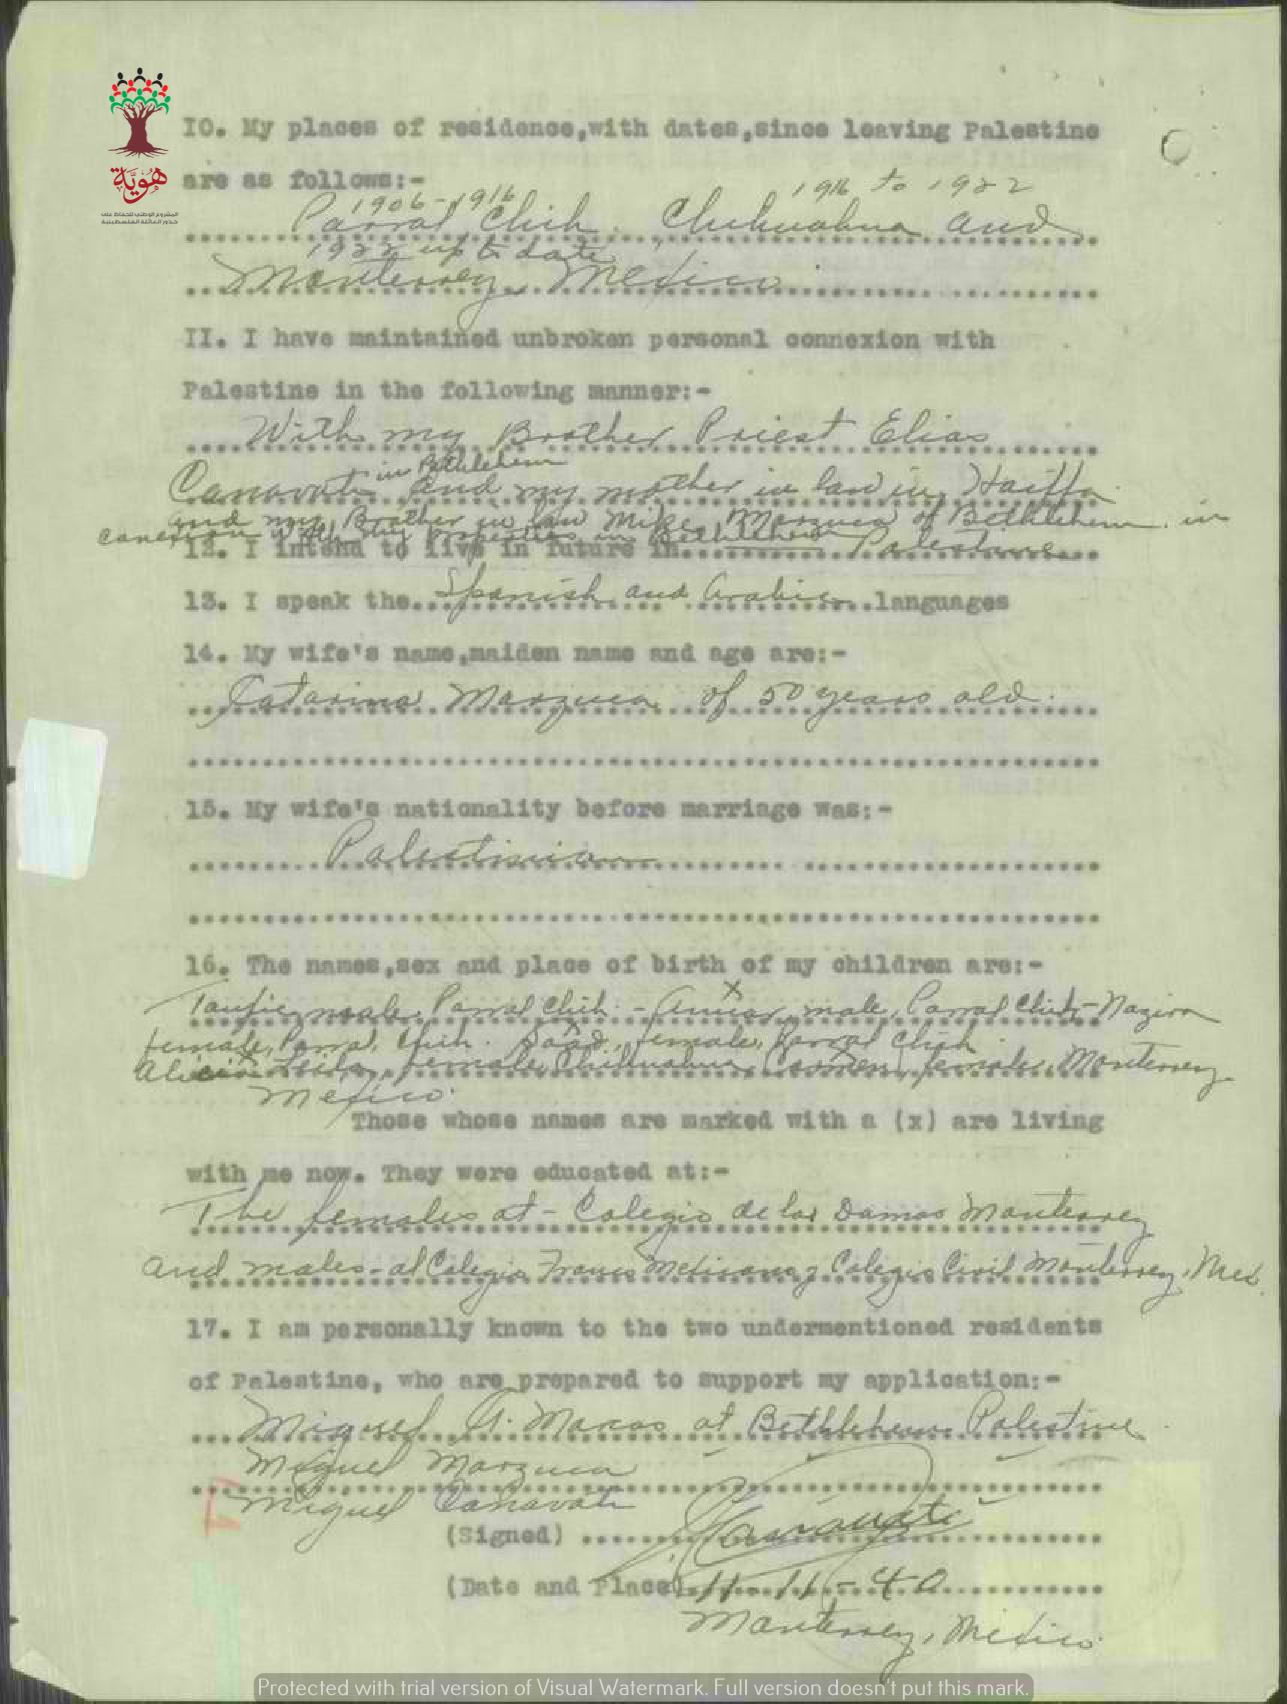 هوية
المشروع الوطني للحفاظ على
جذور العائلة الفلسطينية
IO. My places of residence,with dates,since leaving Palestine
are as follows:-
1906-1916 1916 to 1922
Parral, Chih. Chihuahua and
1922 up to date
Monterrey, Mexico
II. I have maintained unbroken personal connexion with
Palestine in the following manner:-
With my Brother Priest Elias
in Bethlehem
Canavati and my mother in law in Haiffa
and my Brother in law Mike Marzuca of Bethlehem. in
conexion with my properties in Bethlehem
12. I intend to live in future in Palestine
13. I speak the Spanish and Arabic languages
14. My wife's name,maiden name and age are:-
Catarina Marzuca of 50 years old.
15. My wife's nationality before marriage was:-
Palestinian
16. The names,sex and place of birth of my children are:-
x
Taufic, male, Parral Chih. - male, Parral Chih - Nazira
female, Parral, Chih. female, Parral Chih
Alicia female, Chihuahua, Carmen, female, Monterrey
Mexico.
Those whose names are marked with a (x) are living
with me now. They were educated at:-
The females at - Colegio de las Damas Monterrey
and males - al Colegio Franco Mexicano y Colegio Civil Monterrey, Mex.
17. I am personally known to the two undermentioned residents
of Palestine, who are prepared to support my application:-
Miguel A. Marcos at Bethlehem Palestine
Miguel Marzuca
Miguel Canavati
(Signed) Canavati
(Date and Place) 11-11-40
Monterrey, Mexico.
Protected with trial version of Visual Watermark. Full version doesn't put this mark.